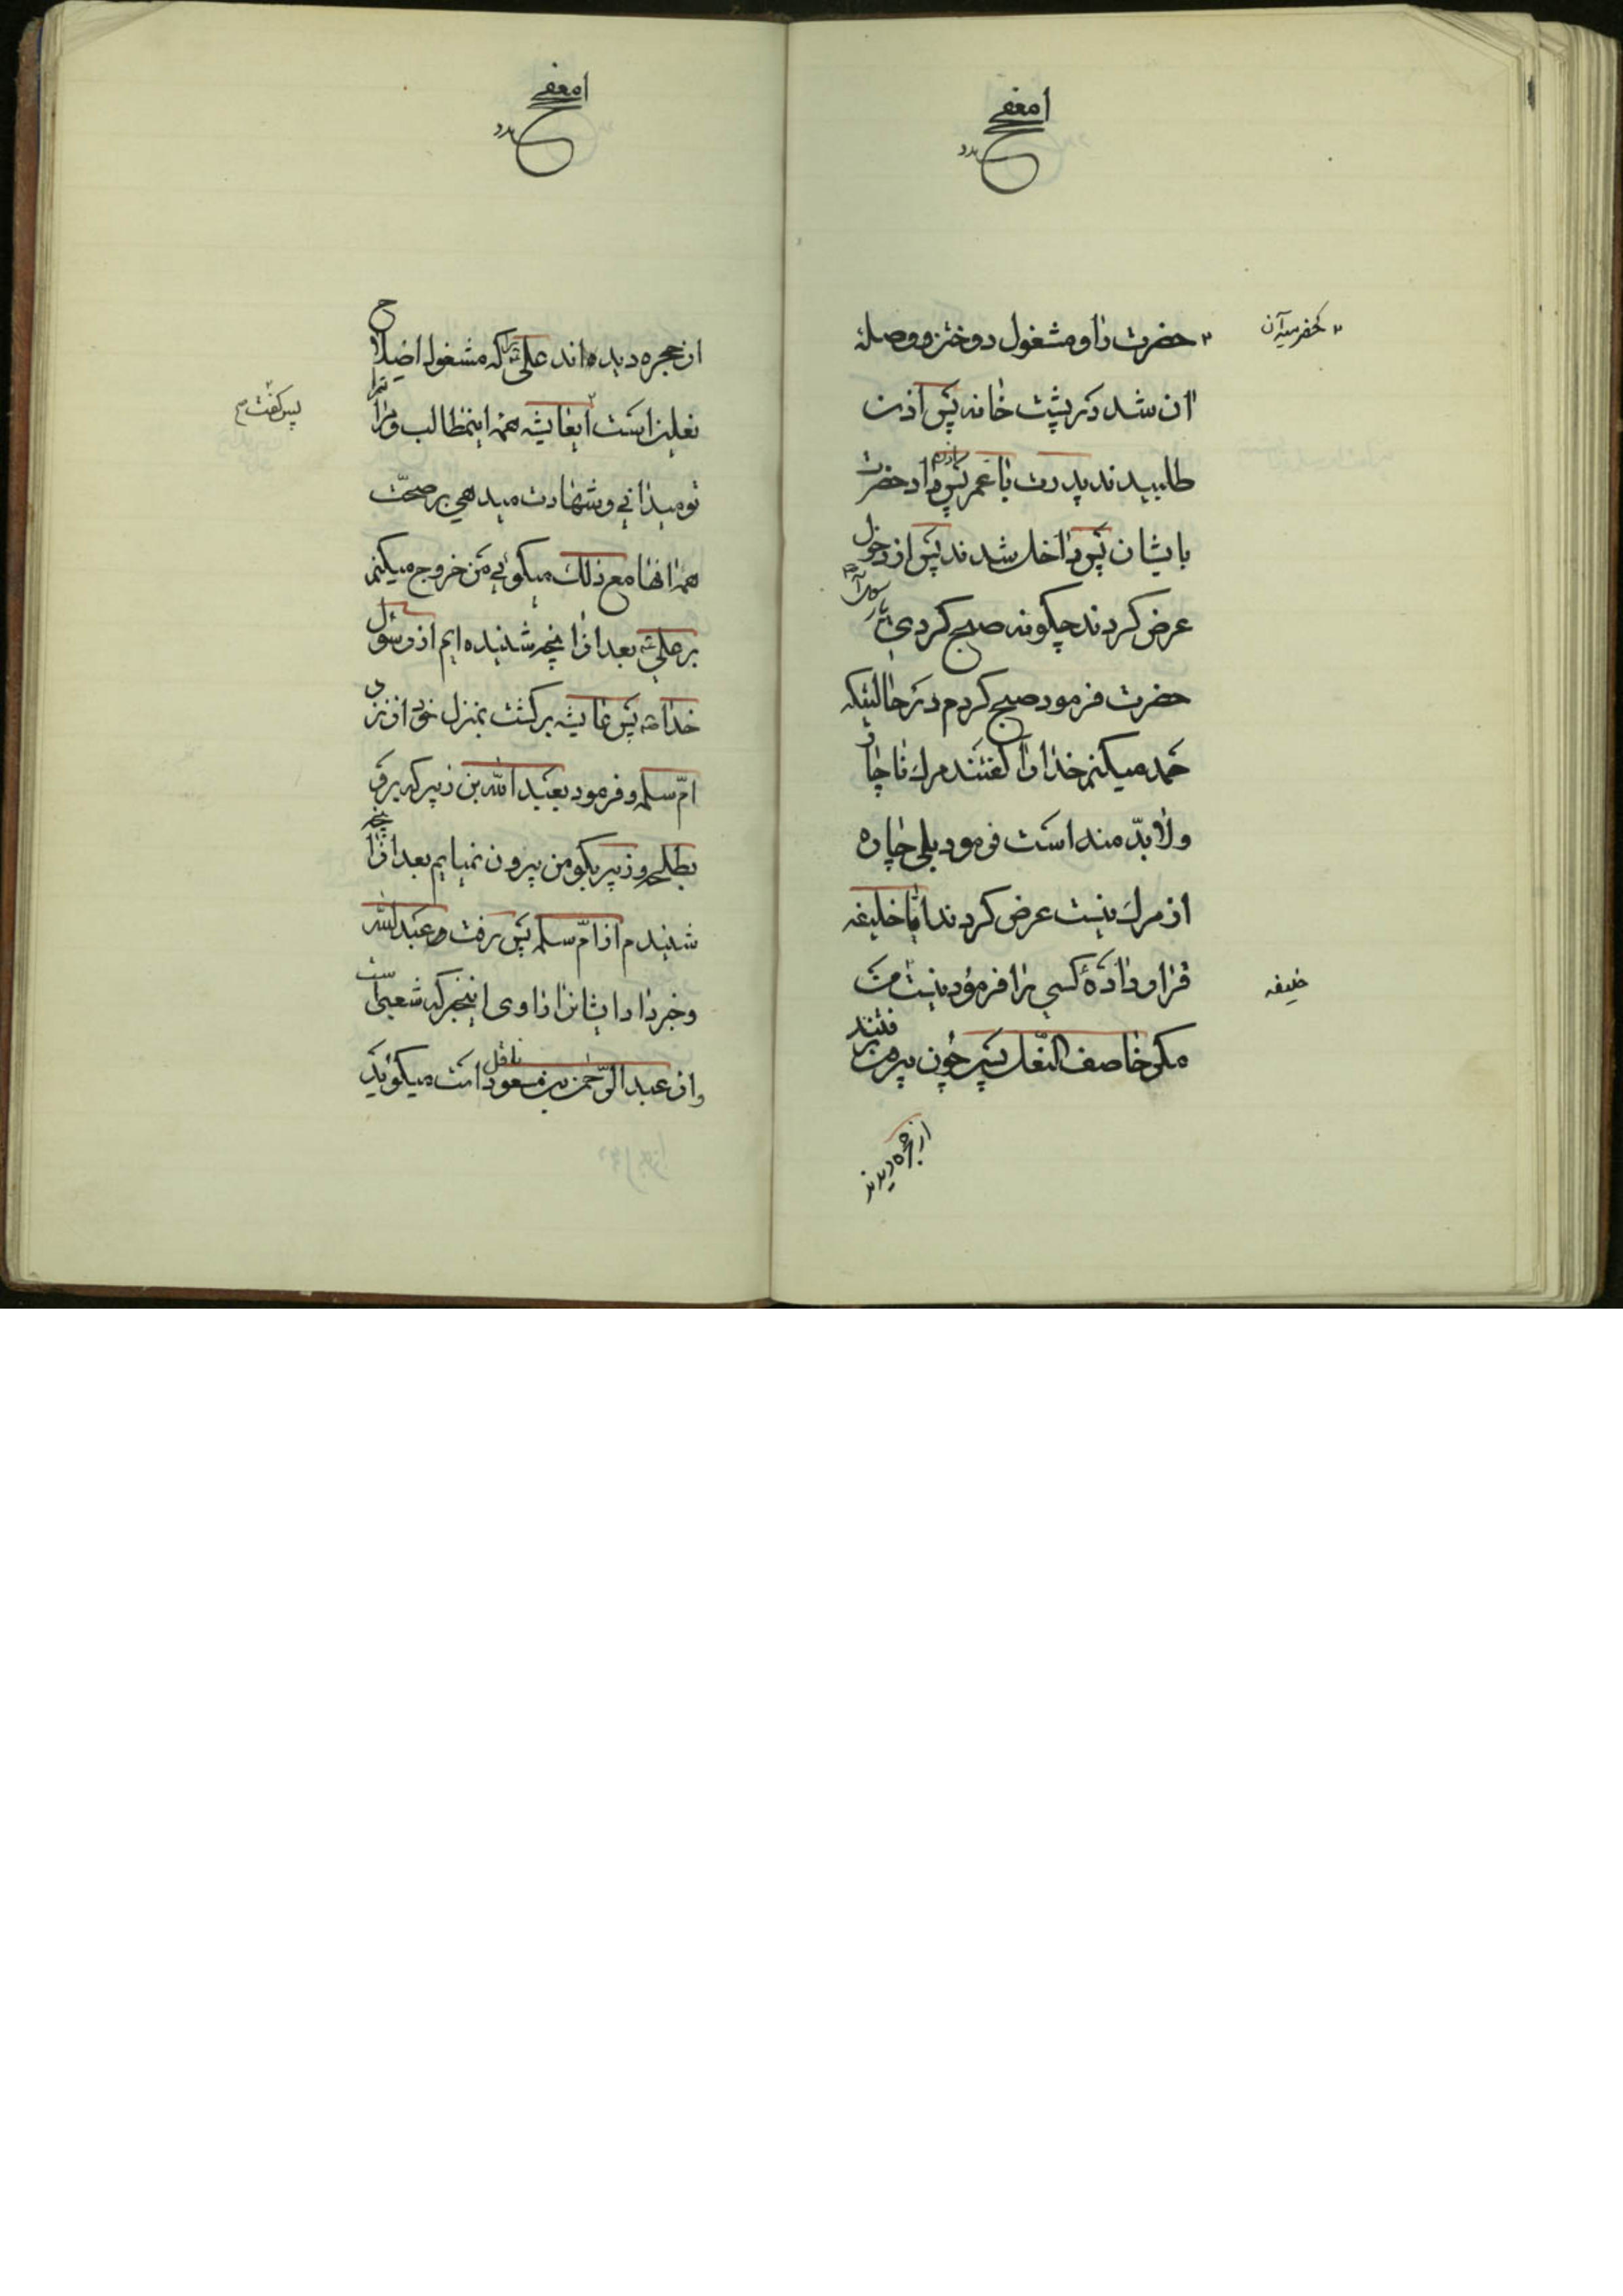 حضرت را و مشغول دوختن و وصلهٔ
ان شد در پشت خانه پس اذن
طلبیدند پدرت با عمر پس داد حضرت
بایشان پس داخل شدند پس از دخول
عرض کردند چگونه صبح کردی
حضرت فرمود صبح کردم در حالتیکه
حمد میکنم خدا را گفتند مرك ناچار
ولابدّ منه است فرمود بلی چاره
از مرك نیست عرض کردند ایا خلیفه
قرار دادهٔ کسی را فرمود نیست
خلیفه
مکر خاصف النّعل پس چون بیرون رفتند
از حجره دیدند
از حجره دیده‌اند علی را که مشغول اصلاح
نعلین است ایعایشه همه اینمطالب و مراتب را
پس گفت
تو میدانی و شهادت میدهی بر صحّت
همه انها مع ذلك میگوئی من خروج میکنم
بر علی بعد از انچه شنیده‌ایم از رسول
خدا پس عایشه برگشت بمنزل خود از نزد
امّ سلمه و فرمود بعبد الله بن زبیر که برو
بطلحه و زبیر بگو من بیرون نمیایم بعد از انچه
شنیدم از امّ سلمه پس رفت عبد الله
و خبر داد ایشانرا راوی اینخبر که شعبی است
و از عبد الرّحمن بن مسعود ناقل است میگوید